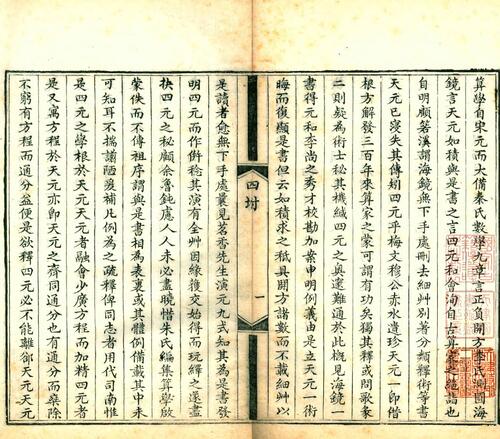 算學自宋元而大備秦氏數學九章言正負開方李氏測圓海
鏡言天元如積與是書之言四元和會洵自古算家之絶詣也
自明顧箬溪謂海鏡無下手處刪去細艸別著分類釋術等書
天元已寖失其傳矧四元乎梅文穆公赤水遺珍天元一即借
根方解發三百年來算家之蒙可謂有功矣獨其釋或問歌彖
二則疑為術士秘其機緘四元之奧遂難通於此槪見海鏡一
書得元和李尚之秀才校勘加案申明例義由是立天元一術
晦而復顯是書但云如積求之秪具開方諸數而不載細艸以
四坿
一
是讀者愈無下手處曩見茗香先生演元九式知其為是書發
明四元而作倂稔其演有全艸因緣後交始得而玩繹之遂盡
抉四元之秘顧余魯鈍慮人人未必盡曉惜朱氏編集算學啟
蒙佚而不傳祖序謂與是書相為表裏或其體例備載其中未
可知耳不揣譾陋爰補比例為之疏釋俾同志者用代司南惟
是四元之學根於天元天元者融會少廣方程而加精四元者
是又寓方程於天元亦卽天元之齊同通分也有通分而乘除
不窮有方程而通分益便是欲釋四元必不能離卻天元天元